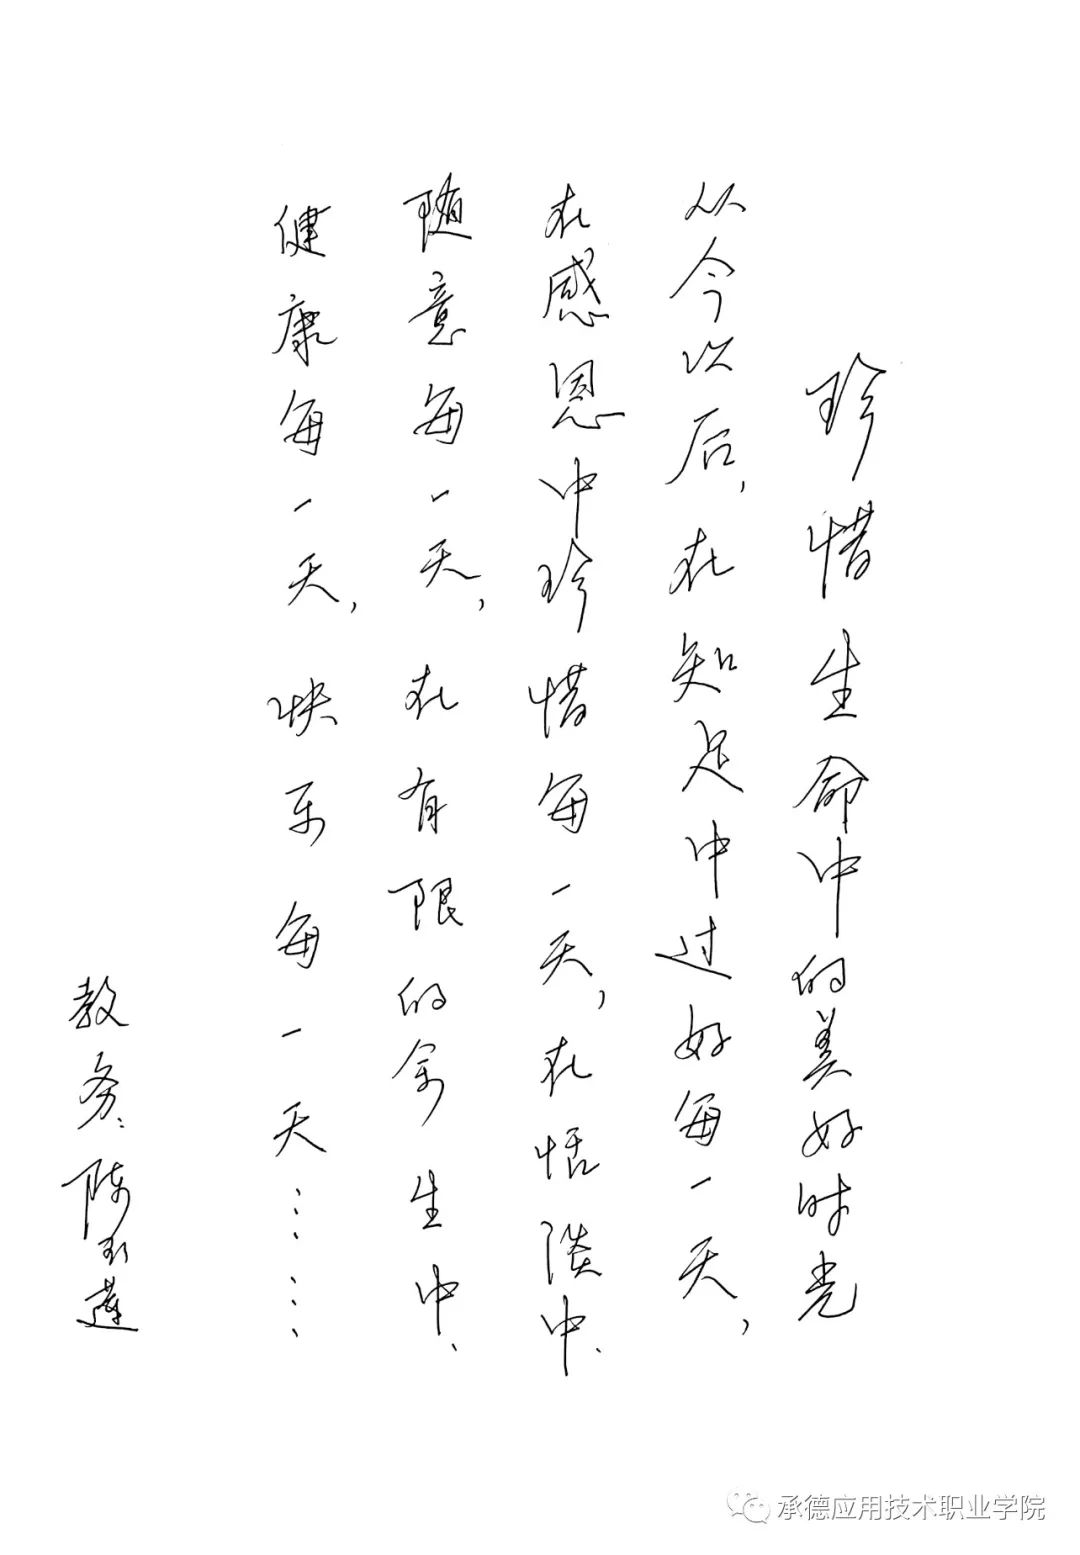 珍惜生命中的美好时光
从今以后，在知足中过好每一天，
在感恩中珍惜每一天，在恬淡中、
随意每一天，在有限的余生中、
健康每一天，快乐每一天……
教务：陈玉莲
承德应用技术职业学院